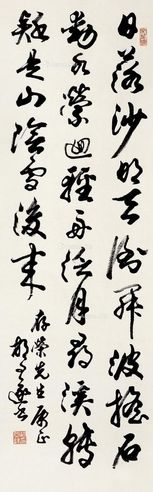 日落沙明天倒开波摇石
动水萦回轻舟泛月寻溪转
疑是山阴雪后来
存荣先生属正
胡问遂书